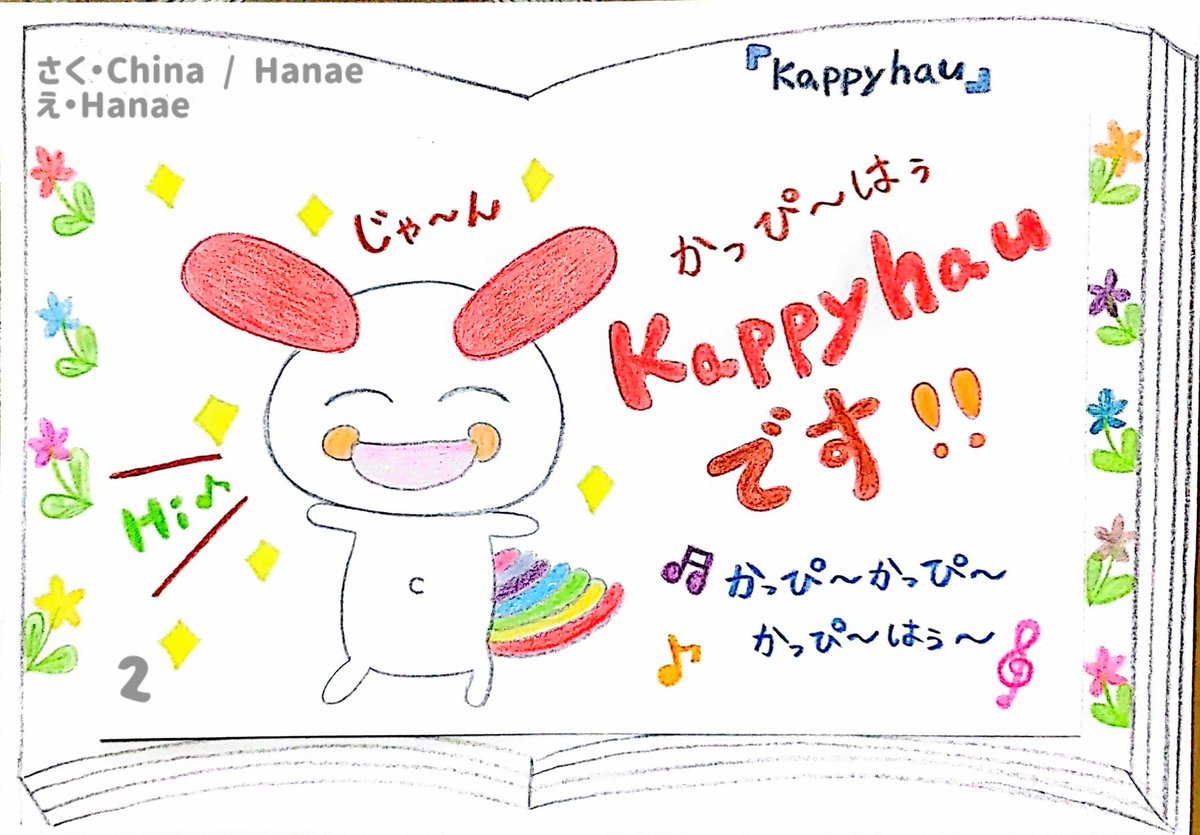 さく・China / Hanae
え・Hanae
『Kappyhau』
じゃ〜ん
かっぴ〜はぅ
Kappyhau
です!!
Hi♪
かっぴ〜かっぴ〜
かっぴ〜はぅ〜
C
2